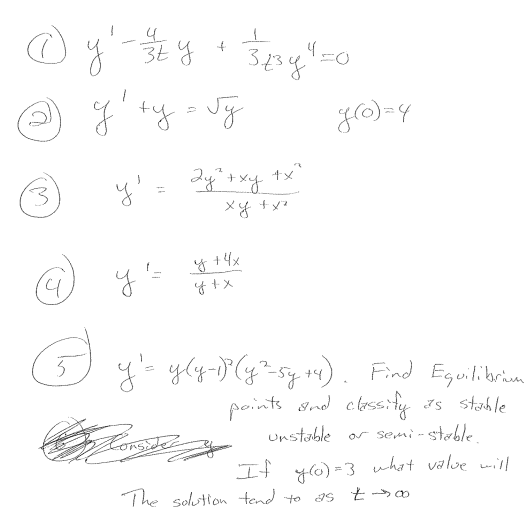 ① y' - 4/3t y + 1/3t³ y⁴ = 0
② y' + y = √y y(0) = 4
③ y' = (2y² + xy + x²)/(xy + x²)
④ y' = (y + 4x)/(y + x)
⑤ y' = y(y-1)³(y² - 5y + 4). Find Equilibrium
points and classify as stable
unstable or semi-stable.
If y(0) = 3 what value will
The solution tend to as t → ∞